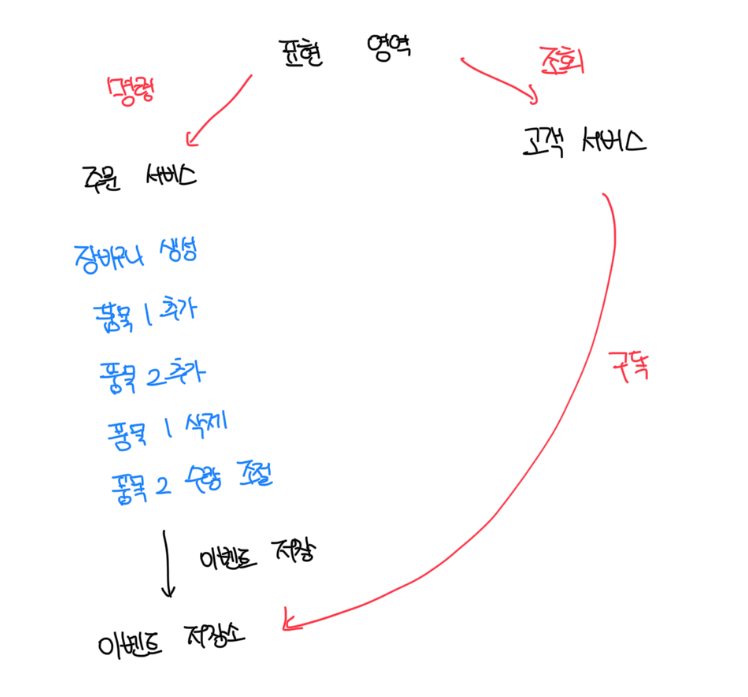 표현 영역
명령
조회
주문 서비스
고객 서비스
장바구니 생성
품목 1 추가
품목 2 추가
품목 1 삭제
품목 2 수량 조절
구독
이벤트 저장
이벤트 저장소